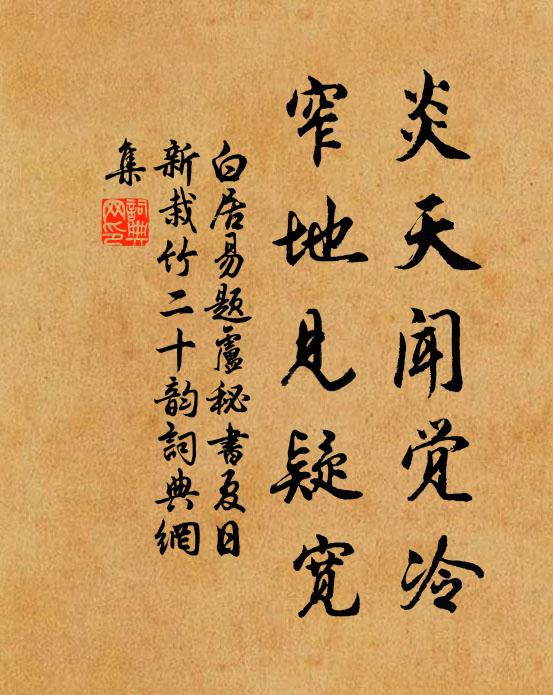 炎天闻觉冷
窄地见疑宽
白居易题盧秘書夏日
新栽竹二十韵詞典網
集
詞典网印